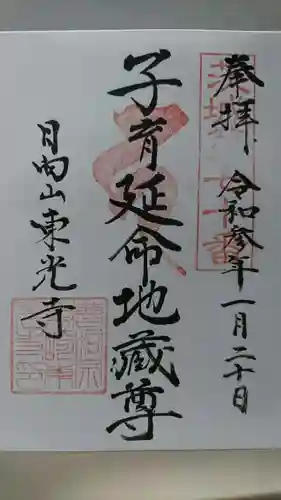 奉拝
令和参年一月二十日
子育延命地蔵尊
日向山東光寺